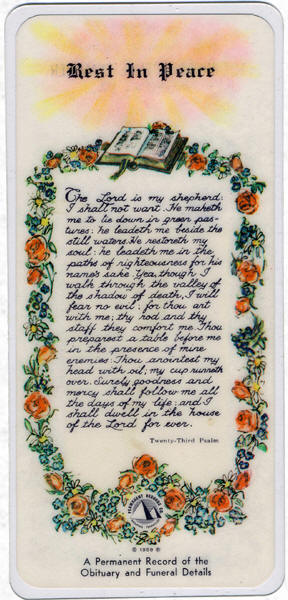 Rest In Peace
The Lord is my shepherd;
I shall not want. He maketh
me to lie down in green pas-
tures: he leadeth me beside the
still waters. He restoreth my
soul: he leadeth me in the
paths of righteousness for his
name's sake. Yea, though I
walk through the valley of
the shadow of death, I will
fear no evil: for thou art
with me; thy rod and thy
staff they comfort me. Thou
preparest a table before me
in the presence of mine
enemies: Thou anointest my
head with oil; my cup runneth
over. Surely goodness and
mercy shall follow me all
the days of my life: and I
shall dwell in the house
of the Lord for ever.
Twenty-Third Psalm
PERMANENT RECORDS CO.
© 1959 ®
A Permanent Record of the
Obituary and Funeral Details